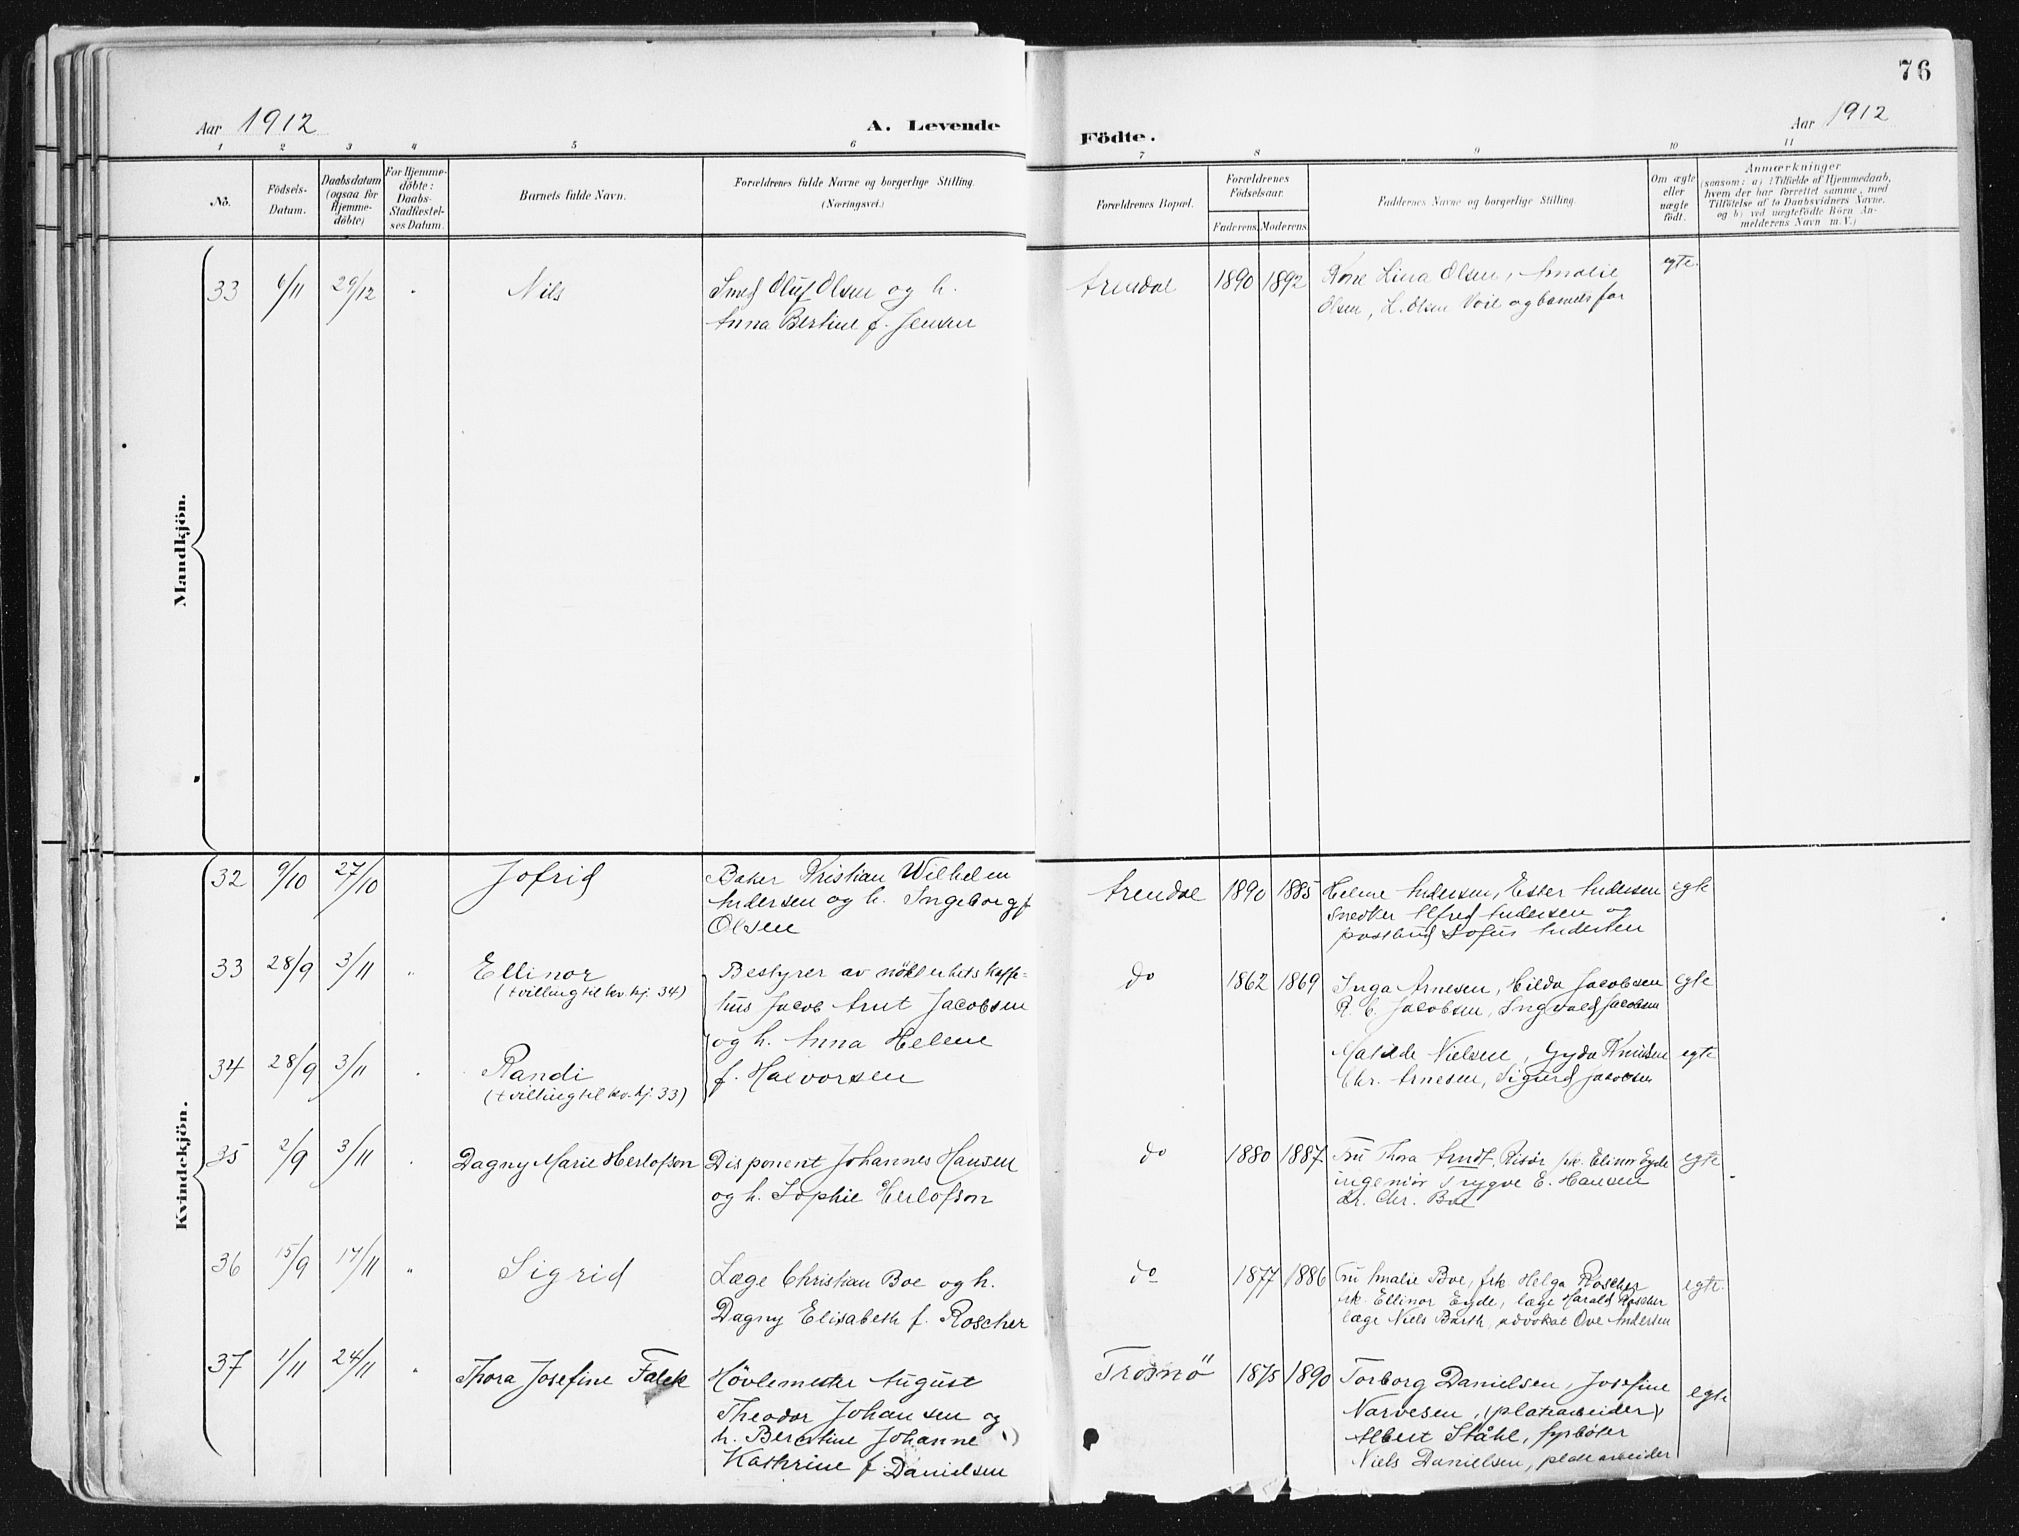 76
Aar 1912
A. Levende
Födte.
Aar 1912
1 2 3 4 5 6 7 8 9 10 11
No.
Födsels-
Datum.
Daabsdatum
(ogsaa for
Hjemme-
döbte)
For Hjemme-
döbte:
Daabs-
Stadfæstel-
ses Datum.
Barnets fulde Navn.
Forældrenes fulde Navne og borgerlige Stilling.
(Næringsvei.)
Forældrenes Bopæl.
Forældrenes
Födselsaar.
Faderens Moderens
Faddernes Navne og borgerlige Stilling
Om ægte
eller
uægte
födt.
Anmærkninger
(saasom: a) i Tilfælde af Hjemmedaab,
hvem der har forrettet samme, med
Tilföielse af to Daabsvidners Navne,
og b) ved uægtefödte Börn An-
melderens Navn m. V.)
Mandkjön.
33 6/11 29/12 " Nils
Smed Oluf Olsen og h.
Anna Bertine f. Jensen
Arendal 1890 1892
Kone Lina Olsen, Amalie
Olsen, L. Olsen Voie og barnets far
egte.
Kvindekjön.
32 9/10 27/10 Jofrid
Baker Kristian Wilhelm
Andersen og h. Ingeborg f.
Olsen
Arendal 1890 1885
Helene Andersen, Ester Andersen
Snedker Alfred Andersen og
postbud Sofus Andersen
egte
33 28/9 3/11 " Ellinor
(tvilling til kv. kj. 34)
Bestyrer av nökterhets kaffe-
hus Jacob Arnt Jacobsen
og h. Anna Helene
f. Halvorsen
do 1862 1869
Inga Arnesen, Hilda Jacobsen
R. C. Jacobsen, Ingvald Jacobsen
egte
34 28/9 3/11 Randi
(tvilling til kv. kj. 33)
Matilde Nielsen, Gyda Knudsen
Chr. Arnesen, Sigurd Jacobsen
egte
35 2/9 3/11 Dagny Marie Herlofson
Disponent Johannes Hansen
og h. Sophie Herlofson
do 1880 1887
Fru Thora Arndt, Risör, frk. Elinor Eyde
ingeniör Trygve E. Hansen
dr. Chr. Boe
egte
36 15/9 17/11 " Sigrid
Læge Christian Boe og h.
Dagny Elisabeth f. Roscher
do 1877 1886
Fru Amalie Boe, frk. Helga Roscher
frk. Ellinor Eyde, læge Harald Roscher
læge Niels Barth, advokat Ove Andersen
egte.
37 1/11 24/11 " Thora Josefine Falck
Hövlemester August
Theodor Johansen og
h. Berntine Johanne
Kathrine f. Danielsen
Tromö 1875 1890
Torborg Danielsen, Josefine
Narvesen, (platearbeider)
Albert Ståhl, fyrböter
Niels Danielsen, platearbeider
egte